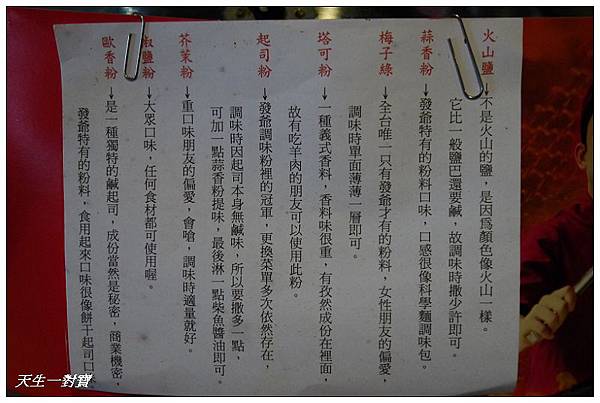 火山鹽→不是火山的鹽，是因為顏色像火山一樣。
它比一般鹽巴還要鹹，故調味時撒少許即可。
蒜香粉→發爺特有的粉料口味，口感很像科學麵調味包。
梅子綠→全台唯一只有發爺才有的粉料，女性朋友的偏愛，
調味時單面薄薄一層即可。
塔可粉→一種義式香料，香料味很重，有孜然成份在裡面，
故有吃羊肉的朋友可以使用此粉。
起司粉→發爺調味粉裡的冠軍，更換菜單多次依然存在，
調味時因起司本身無鹹味，所以要撒多一點，
可加一點蒜香粉提味，最後淋一點柴魚醬油即可。
芥茉粉→重口味朋友的偏愛，會嗆，調味時適量就好。
椒鹽粉→大眾口味，任何食材都可使用喔。
歐香粉→是一種獨特的鹹起司，成份當然是秘密，商業機密，
發爺特有的粉料，食用起來口味很像餅干起司口
天生一對寶